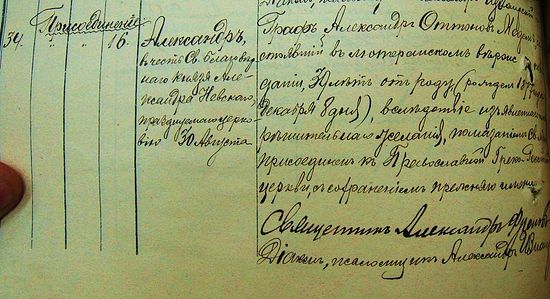 Присоединенiе
39. " " 16. Александръ,
въ честь Св. благовѣр-
наго князя Але-
ксандра Невскаго,
празднуемаго церко-
вiю 30 Августа
Графъ Александръ Оттоновъ Медемъ,
стоявшiй въ лютеранскомъ вѣроис
данiи, лѣтъ отъ роду (родился
Декабря 8 дня), вслѣдствiе изъявленнаго
рѣшительнаго желанiя, помазанiемъ Св.
присоединенъ къ Православной Греко-
церкви, съ сохраненiемъ прежняго имени.
Священникъ Александръ
Дiаконъ, псаломщикъ Александръ